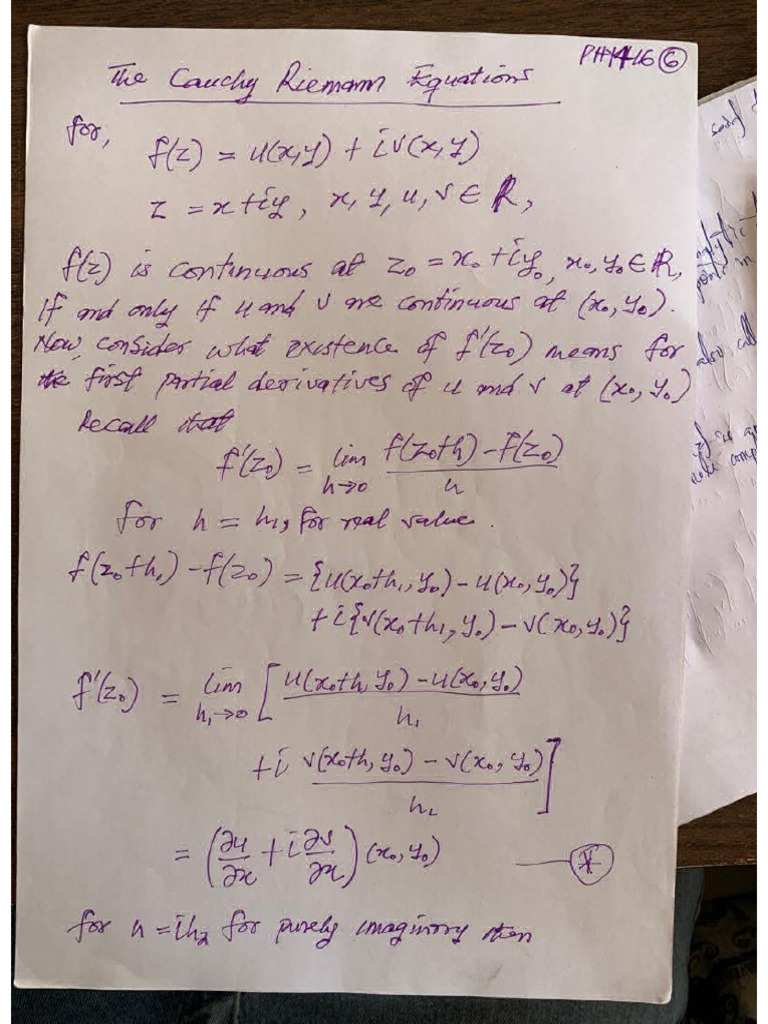 PHY416 ⑥
The Cauchy Riemann Equations
for,
f(z) = u(x,y) + iv(x,y)
z = x+iy, x, y, u, v ∈ ℝ,
f(z) is continuous at z₀ = x₀ + iy₀, x₀, y₀ ∈ ℝ,
if and only if u and v are continuous at (x₀, y₀).
Now, consider what existence of f'(z₀) means for
the first partial derivatives of u and v at (x₀, y₀)
Recall that
f'(z₀) = lim h→0 f(z₀+h) - f(z₀) / h
for h = h₁, for real value.
f(z₀+h₁) - f(z₀) = {u(x₀+h₁, y₀) - u(x₀, y₀)}
+ i{v(x₀+h₁, y₀) - v(x₀, y₀)}
f'(z₀) = lim h₁→0 [ u(x₀+h₁, y₀) - u(x₀, y₀) / h₁
+ i v(x₀+h₁, y₀) - v(x₀, y₀) / h₁ ]
= (∂u/∂x + i ∂v/∂x) (x₀, y₀) — *
for h = ih₂ for purely imaginary then
also call
in